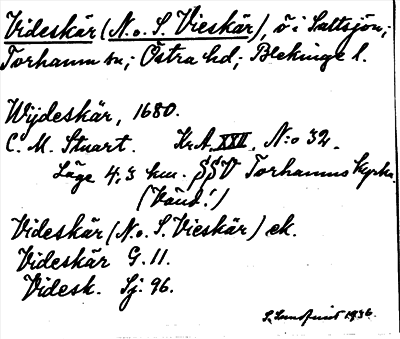 Videskär (N. o. S. Vieskär), ö i Saltsjön;
Torhamn sn; Östra hd; Blekinge l.
Wijdeskär, 1680.
C. M. Stuart. Kr.A. XXII, N:o 32.
Läge 4,3 km. SSV Torhamns kyrka.
(Vänd!)
Videskär (N. o. S. Vieskär) ek.
Videskär G. 11.
Videsk. Sj. 96.
1936.